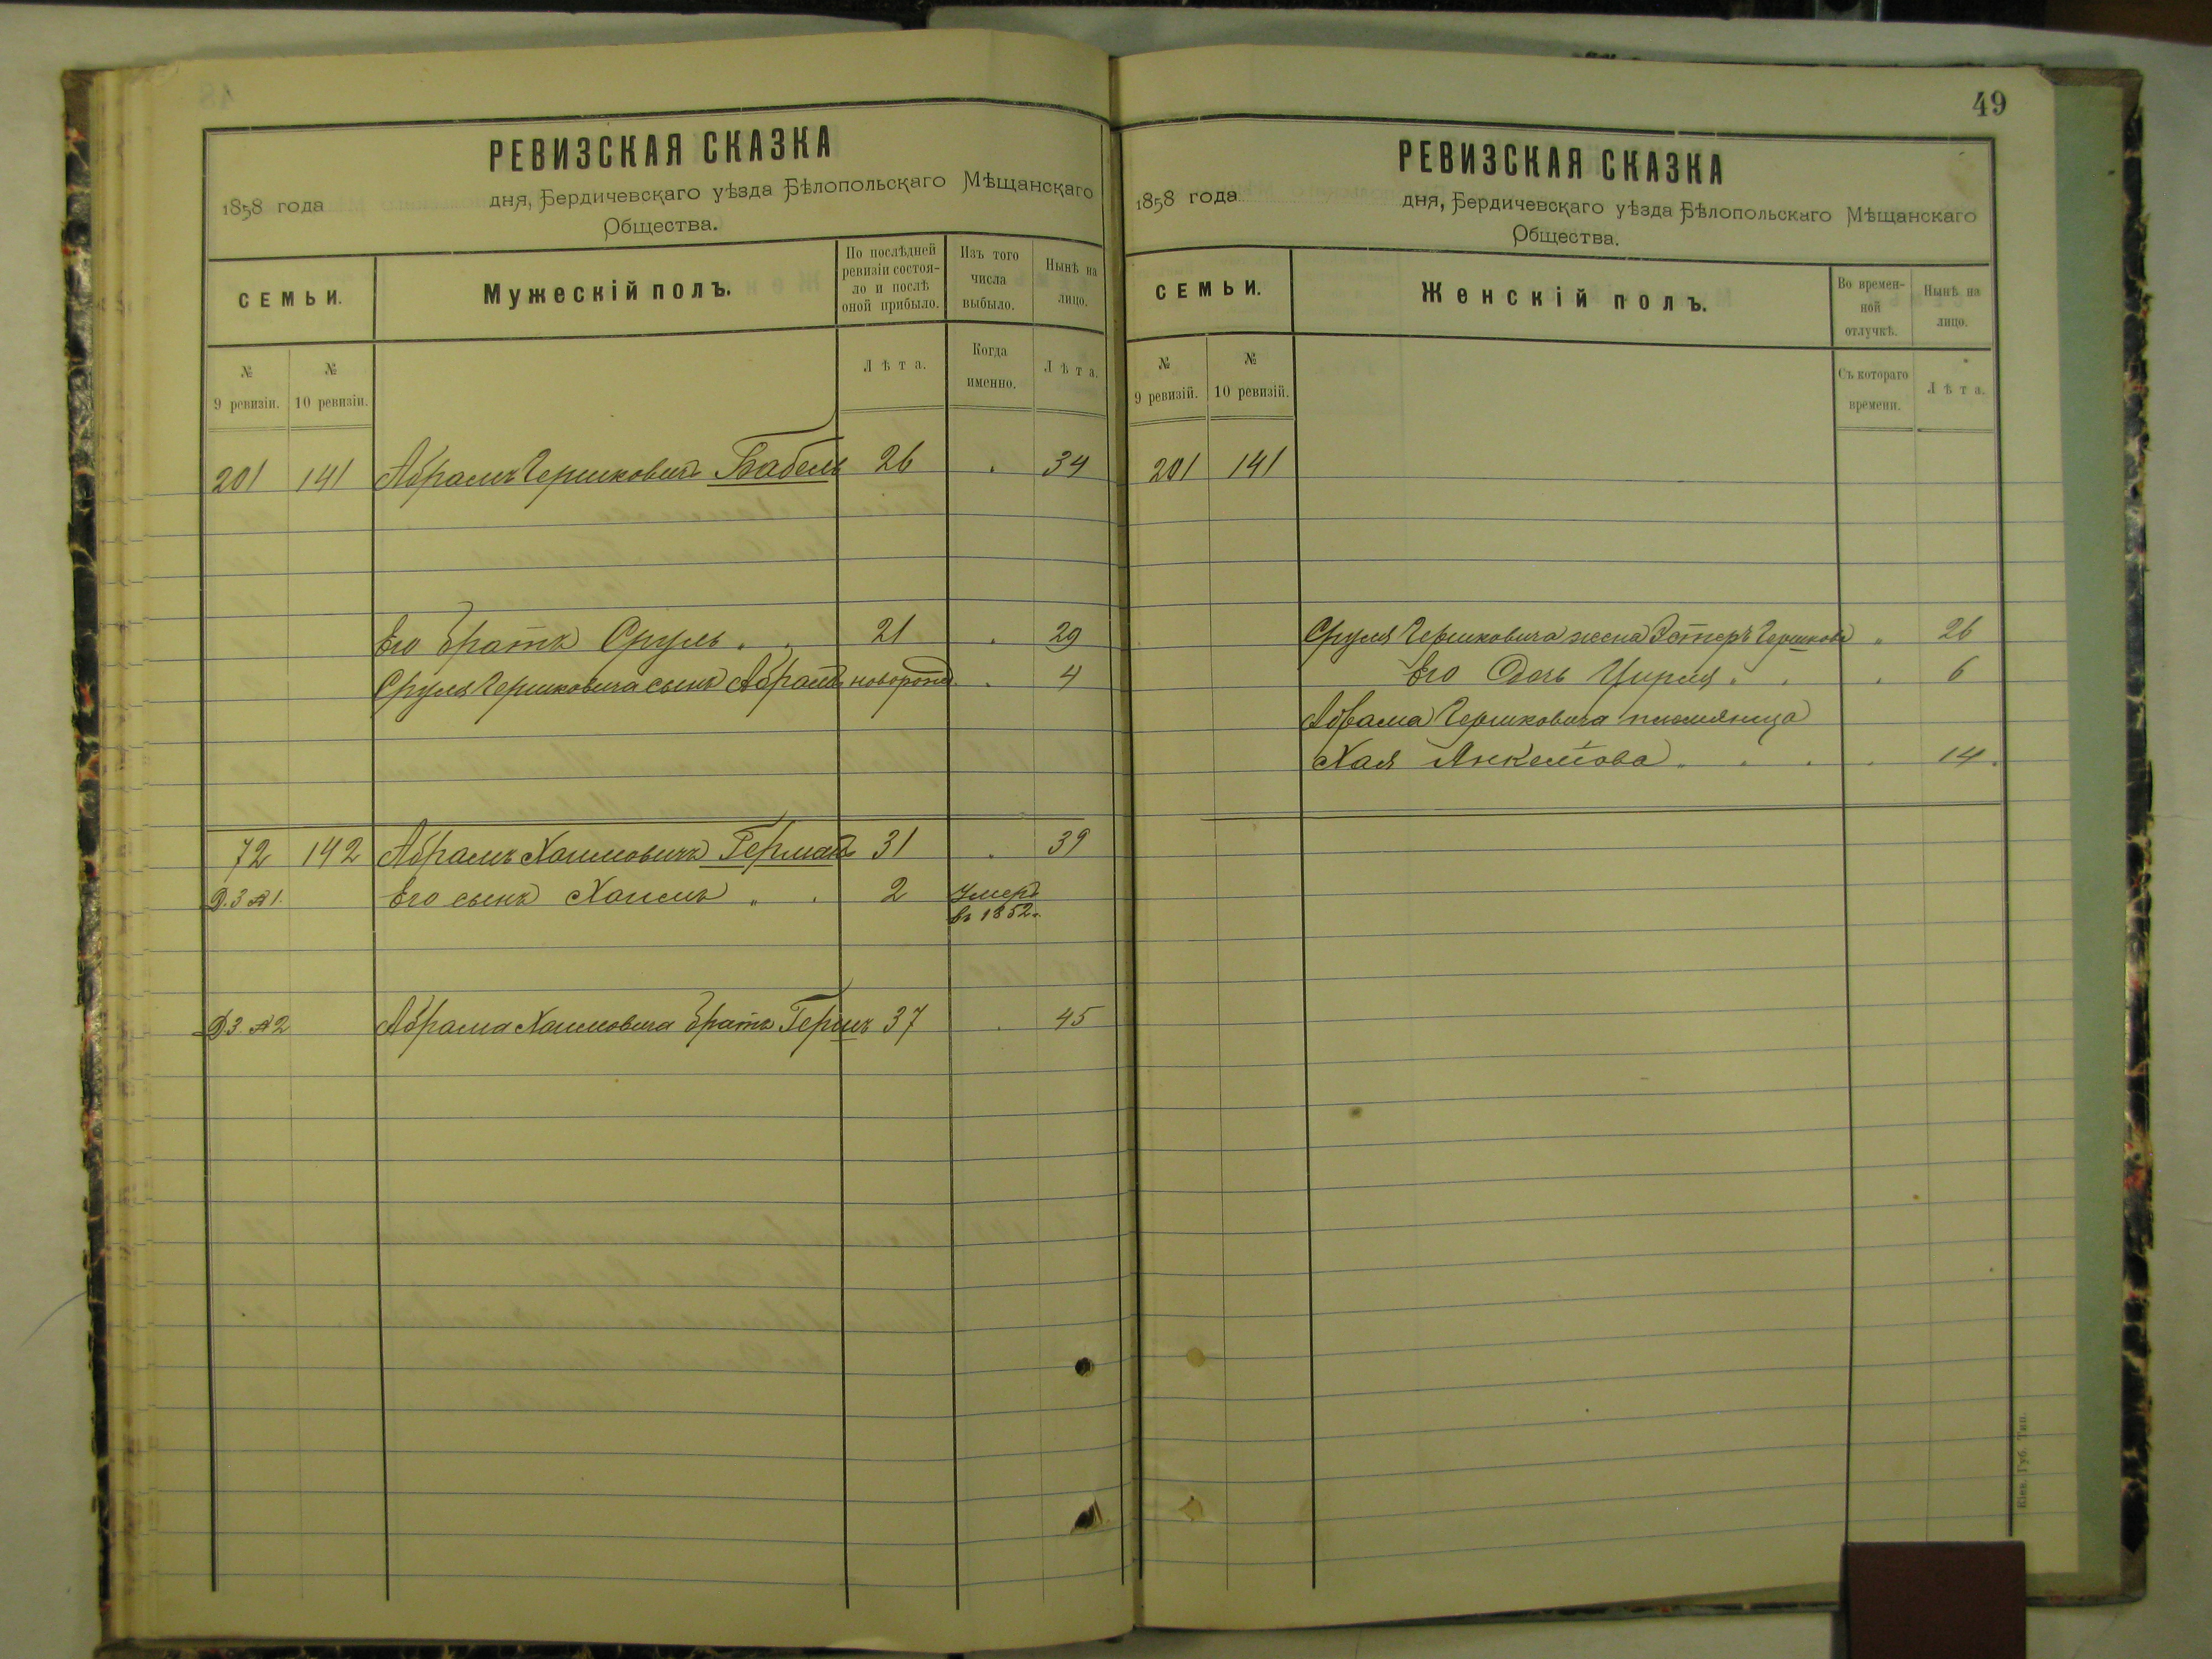 РЕВИЗСКАЯ СКАЗКА
1858 года дня, Бердичевскаго уѣзда Бѣлопольскаго Мѣщанскаго
Общества.
СЕМЬИ. Мужескій полъ. По послѣдней ревизіи состояло и послѣ оной прибыло. Изъ того числа выбыло. Нынѣ на лицо.
№ 9 ревизіи. № 10 ревизіи. Лѣта. Когда именно. Лѣта.
201 141 Абрамъ Гершковичъ Бабель 26 34
Его братъ Сруль 21 29
Сруля Гершковича сынъ Абрамъ новорожд. 4
72 142 Абрамъ Хаимовичъ Герман 31 39
Д.3 №1. Его сынъ Хаимъ 2 Умеръ
въ 1852.
Д3. №2 Абрама Хаимовича братъ Гершъ 37 45
49
РЕВИЗСКАЯ СКАЗКА
1858 года дня, Бердичевскаго уѣзда Бѣлопольскаго Мѣщанскаго
Общества.
СЕМЬИ. Женскій полъ. Во временной отлучкѣ. Нынѣ на лицо.
№ 9 ревизій. № 10 ревизій. Съ котораго времени. Лѣта.
201 141
Сруля Гершковича жена Эстеръ Гершкова 26
Его дочь Цирля 6
Абрама Гершковича племяница
Хая Анкелова 14
Кіев. Губ. Тип.